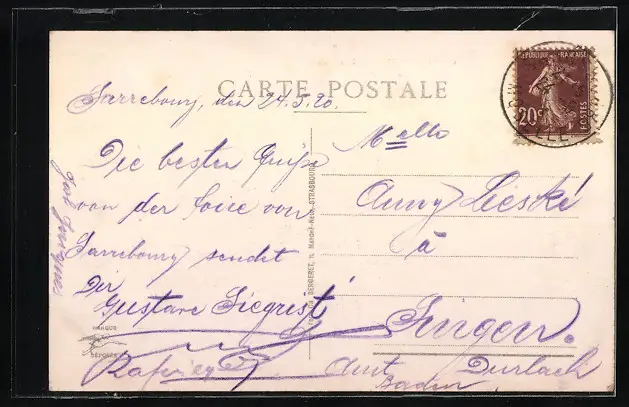 CARTE POSTALE
REPUBLIQUE FRANCAISE
20c
POSTES
Sarrebourg, den 24.5.20.
Die besten Grüße
von der Foire von
Sarrebourg sendet
Dir
Gustave Siegrist
Melle
Anny Lieské
à
Singen.
Amt Durlach
Baden
MARQUE
DÉPOSÉE
STRASBOURG